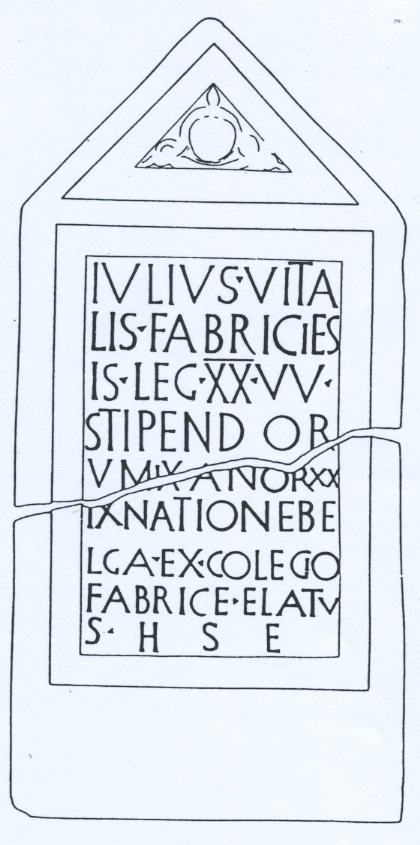 IVLIVS·VITA
LIS·FABRICIES
IS·LEG·XX·VV·
STIPENDIOR
VMIX ANORXX
IXNATIONEBE
LGA·EX·COLEGIO
FABRICE·ELATV
S· H S E